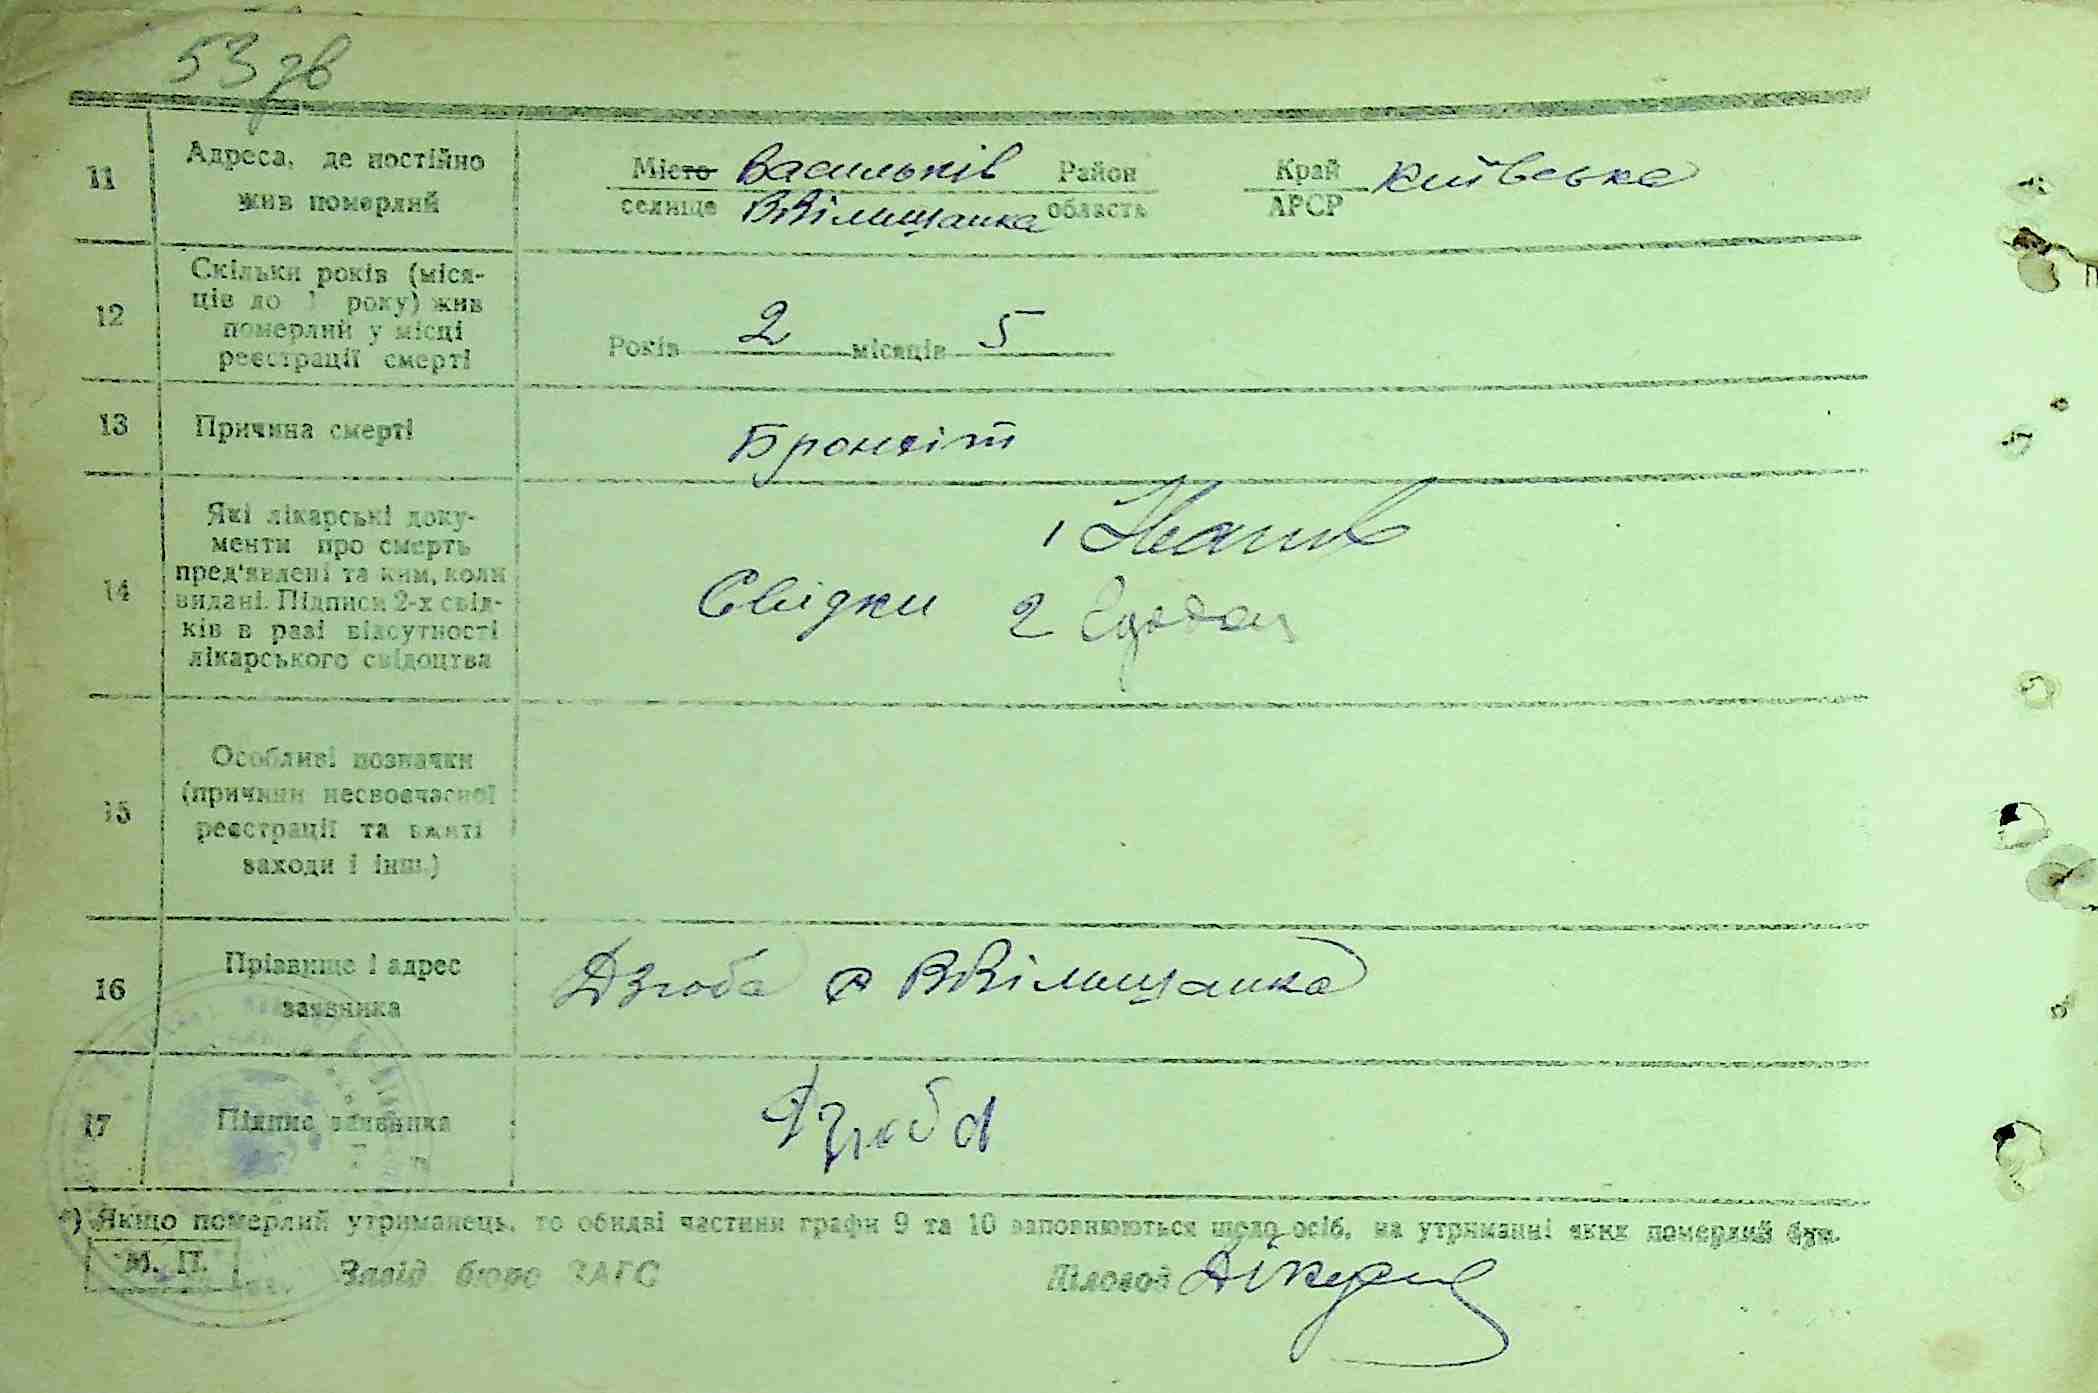 53 зв
11 Адреса, де постійно жив померлий
Місто Васильків Район Край Київська
селище ВВільшанка область АРСР
12 Скільки років (міся-
ців до 1 року) жив
померлий у місці
реєстрації смерті
Років 2 місяців 5
13 Причина смерті Бронхіт
14 Які лікарські доку-
менти про смерть
пред'явлені та ким, коли
видані. Підписи 2-х свід-
ків в разі відсутності
лікарського свідоцтва
1
Свідки 2
15 Особливі позначки
(причини несвоєчасної
реєстрації та вжиті
заходи і інш.)
16 Прізвище і адрес
заявника
Дзюба с ВВільшанка
17 Підпис заявника Дзюба
*) Якщо померлий утриманець, то обидві частини графи 9 та 10 заповнюються щодо осіб, на утриманні яких померлий був.
М. П. Завід бюро ЗАГС Діловод